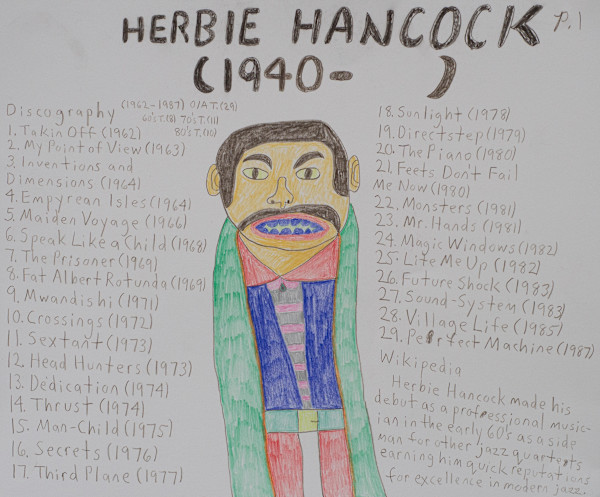 HERBIE HANCOCK p.1
(1940- )
Discography (1962-1987) O/A T.(29)
60's T.(8) 70's T.(11)
80's T.(10)
1. Takin Off (1962)
2. My Point of View (1963)
3. Inventions and
Dimensions (1964)
4. Empyrean Isles (1964)
5. Maiden Voyage (1966)
6. Speak Like a Child (1968)
7. The Prisoner (1969)
8. Fat Albert Rotunda (1969)
9. Mwandishi (1971)
10. Crossings (1972)
11. Sextant (1973)
12. Head Hunters (1973)
13. Dedication (1974)
14. Thrust (1974)
15. Man-Child (1975)
16. Secrets (1976)
17. Third Plane (1977)
18. Sunlight (1978)
19. Directstep (1979)
20. The Piano (1980)
21. Feets Don't Fail
Me Now (1980)
22. Monsters (1981)
23. Mr. Hands (1981)
24. Magic Windows (1982)
25. Lite Me Up (1982)
26. Future Shock (1983)
27. Sound-System (1983)
28. Village Life (1985)
29. Perfect Machine (1987)
Wikipedia
Herbie Hancock made his
debut as a professional music-
ian in the early 60's as a side
man for other jazz quartets
earning him quick reputations
for excellence in modern jazz.